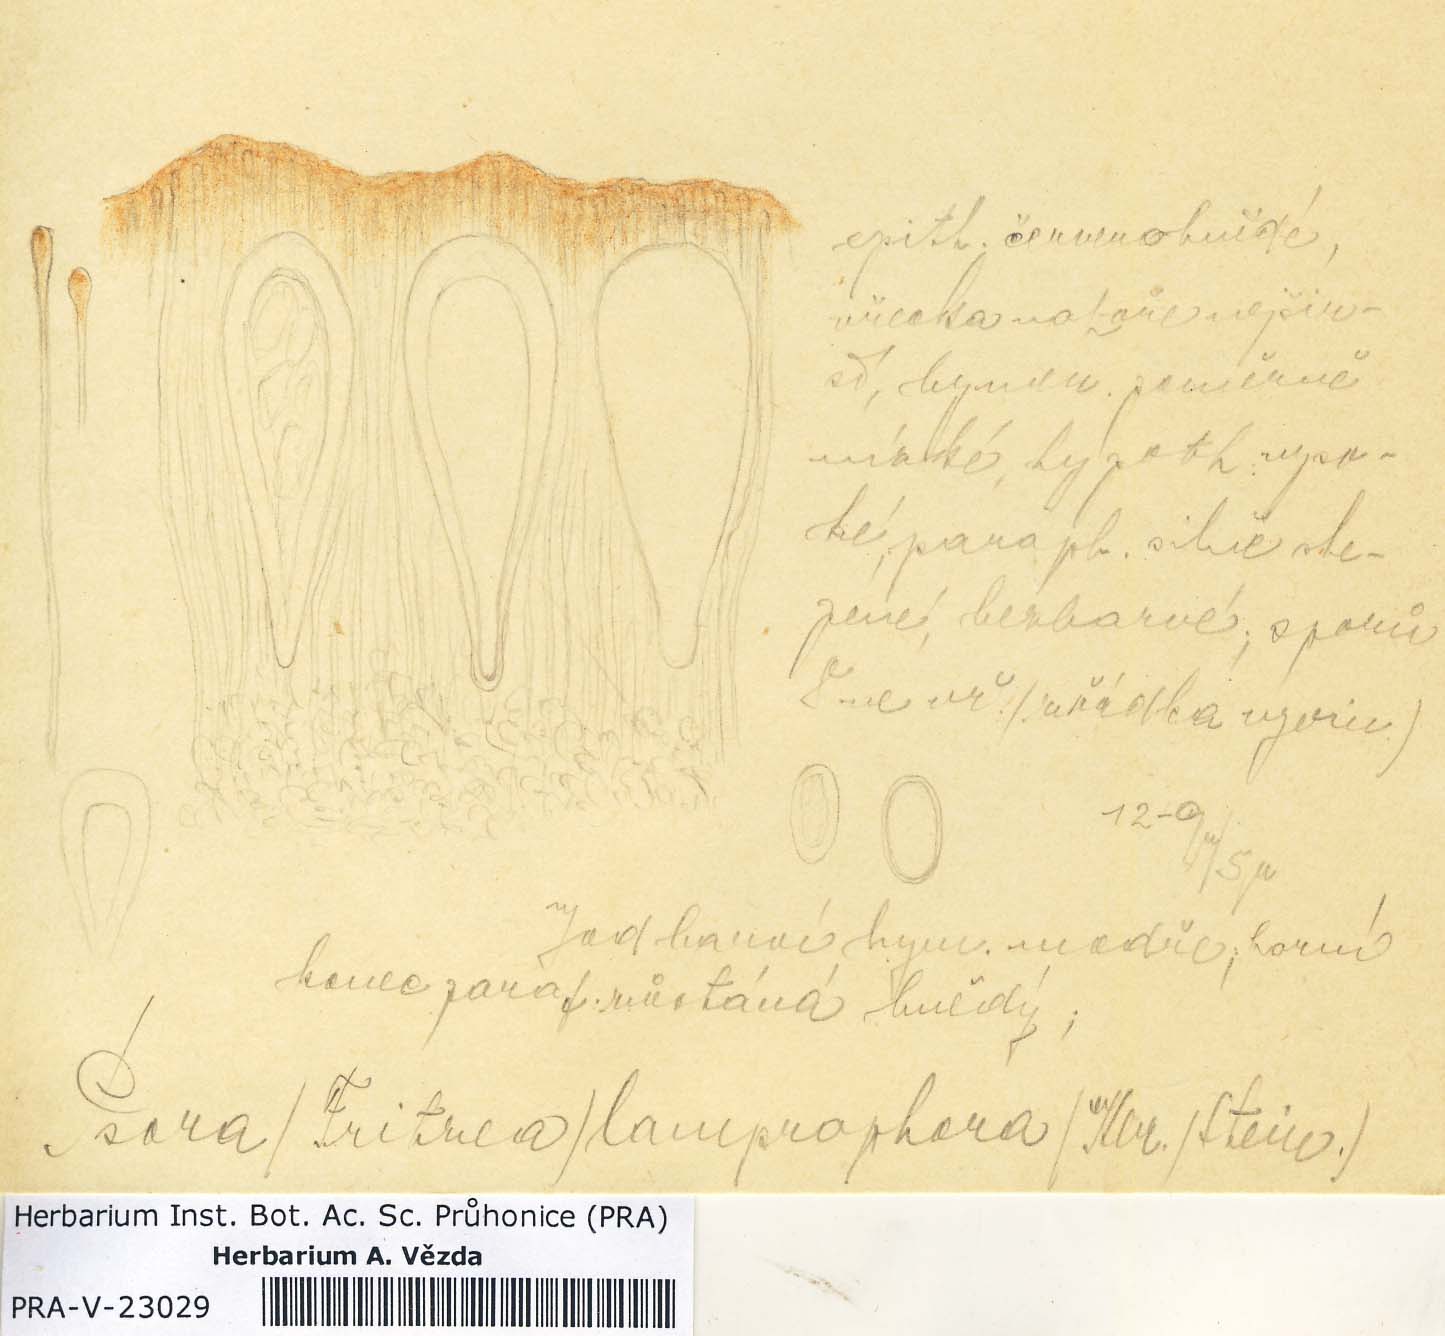 epith. červenohnědé,
vřecka nahoře nejšir-
ší, hymen. poměrně
nízké, hypoth. vyso-
ké, paraph. silně sle-
pené, bezbarvé; sporů
8 ve vř. (zřídka vyvin.)
12-9/5 µ
Jod barví hym. modře; horní
konec paraf. zůstává hnědý;
Psora (Fritzea) lamprophora (Kbr.) Stein.)
Herbarium Inst. Bot. Ac. Sc. Průhonice (PRA)
Herbarium A. Vězda
PRA-V-23029